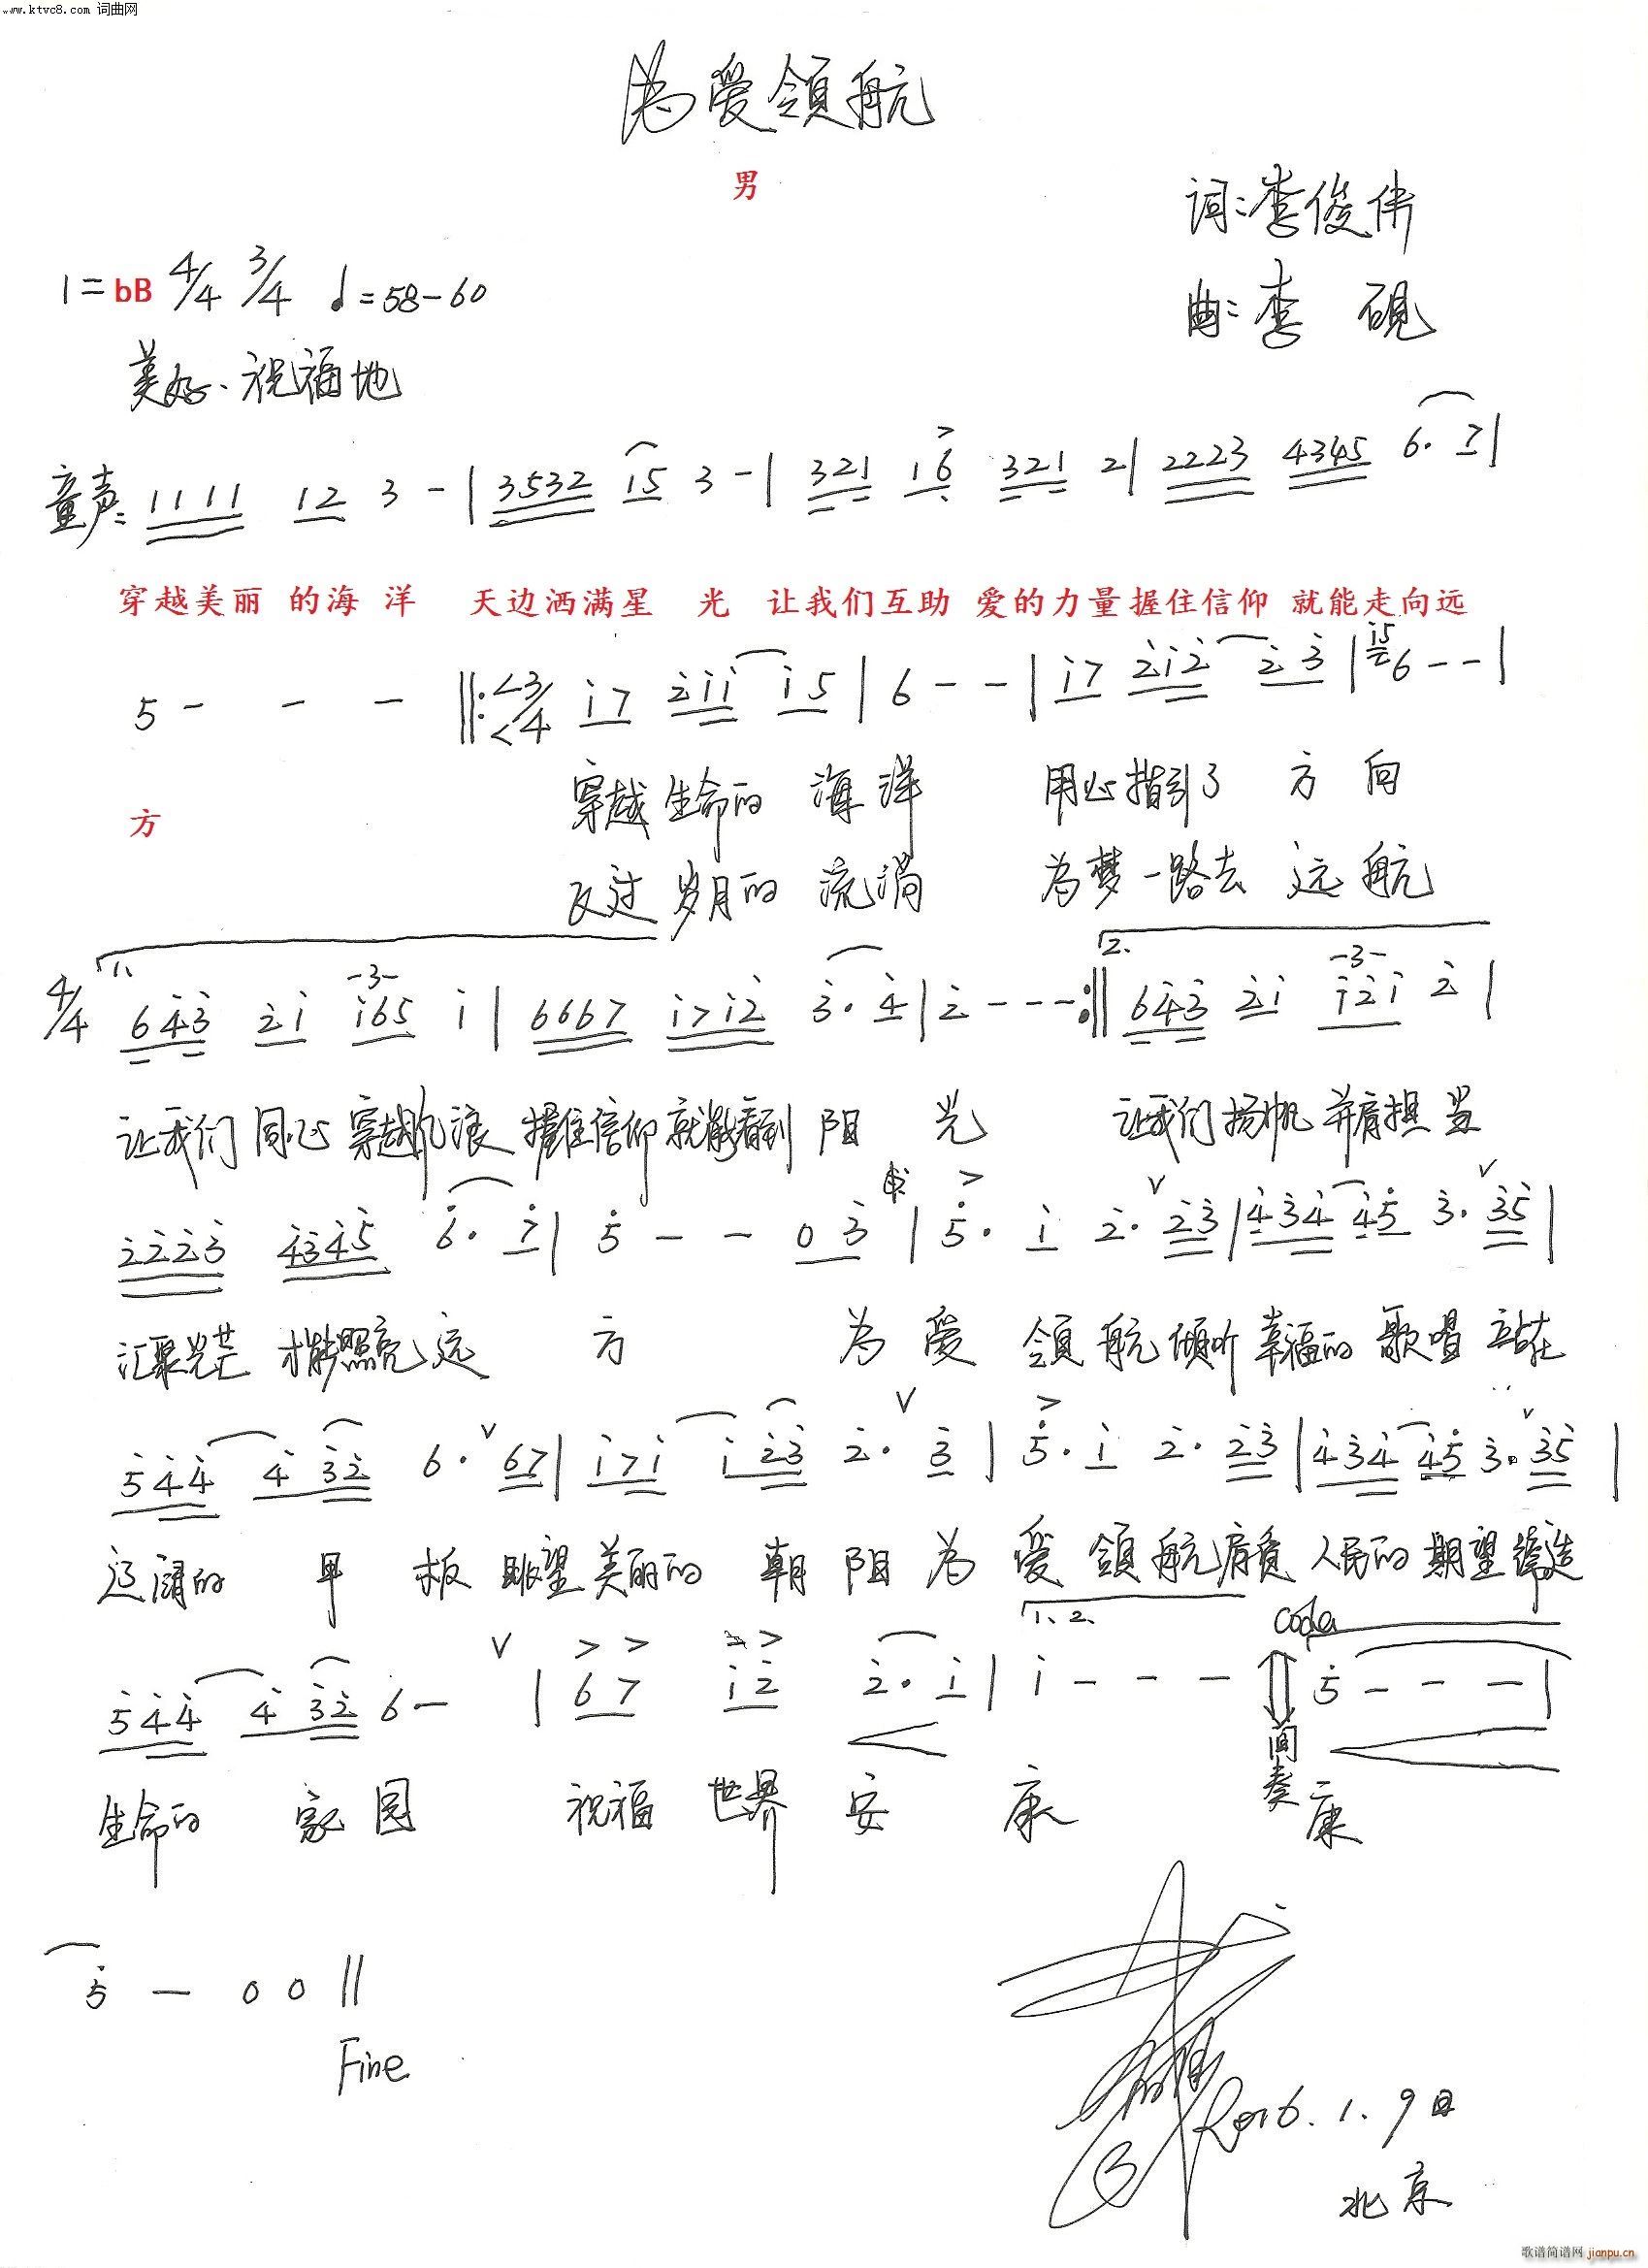 www.ktvc8.com 词曲网
为爱領航
男
词:李俊伟
1=bB 4/4 3/4 ♩=58-60
曲:李 砚
美好.祝福地
童声: 1111 12 3 - | 3532 i5 3 - | 321 16 321 2 | 2223 4345 6. 7 |
穿越美丽 的海 洋 天边洒满星 光 让我们互助 爱的力量握住信仰 就能走向远
5 - - - ||: 3/4 i7 2ii i5 | 6 - - | i7 2i2 2 3 | i5 6 - - |
穿越生命的 海 洋 用心指引了 方 向
方
岁月的 流淌 为梦一路去 远 航
4/4 1. 643 2i -3- i65 i | 6667 i7i2 3. 4 | 2 - - - :|| 2. 643 2i -3- i2i 2 |
让我们 同心 穿越风浪 握住信仰就能看到 阳 光 让我们扬帆 并肩担当
2223 4345 6. 7 | 5 - - 0 3 | 5. i 2. 23 | 434 45 3. 35 |
汇聚光芒 才能照亮远 方 为 爱 領航倾听 幸福的 歌唱 站在
544 4 32 6. 67 | i7i i 23 2. 3 | 5. i 2. 23 | 434 45 3. 35 |
辽阔的 甲 板 眺望美丽的 朝 阳 为 爱 領航肩负 人民的 期望 缔造
1、2. Coda
544 4 32 6 - | 67 i2 2. i | i - - - 5 - - - |
间奏
生命的 家园 祝福 世界 安 康 康
5 - 0 0 ||
Fine
2016.1.9日
北京
歌谱简谱网 jianpu.cn